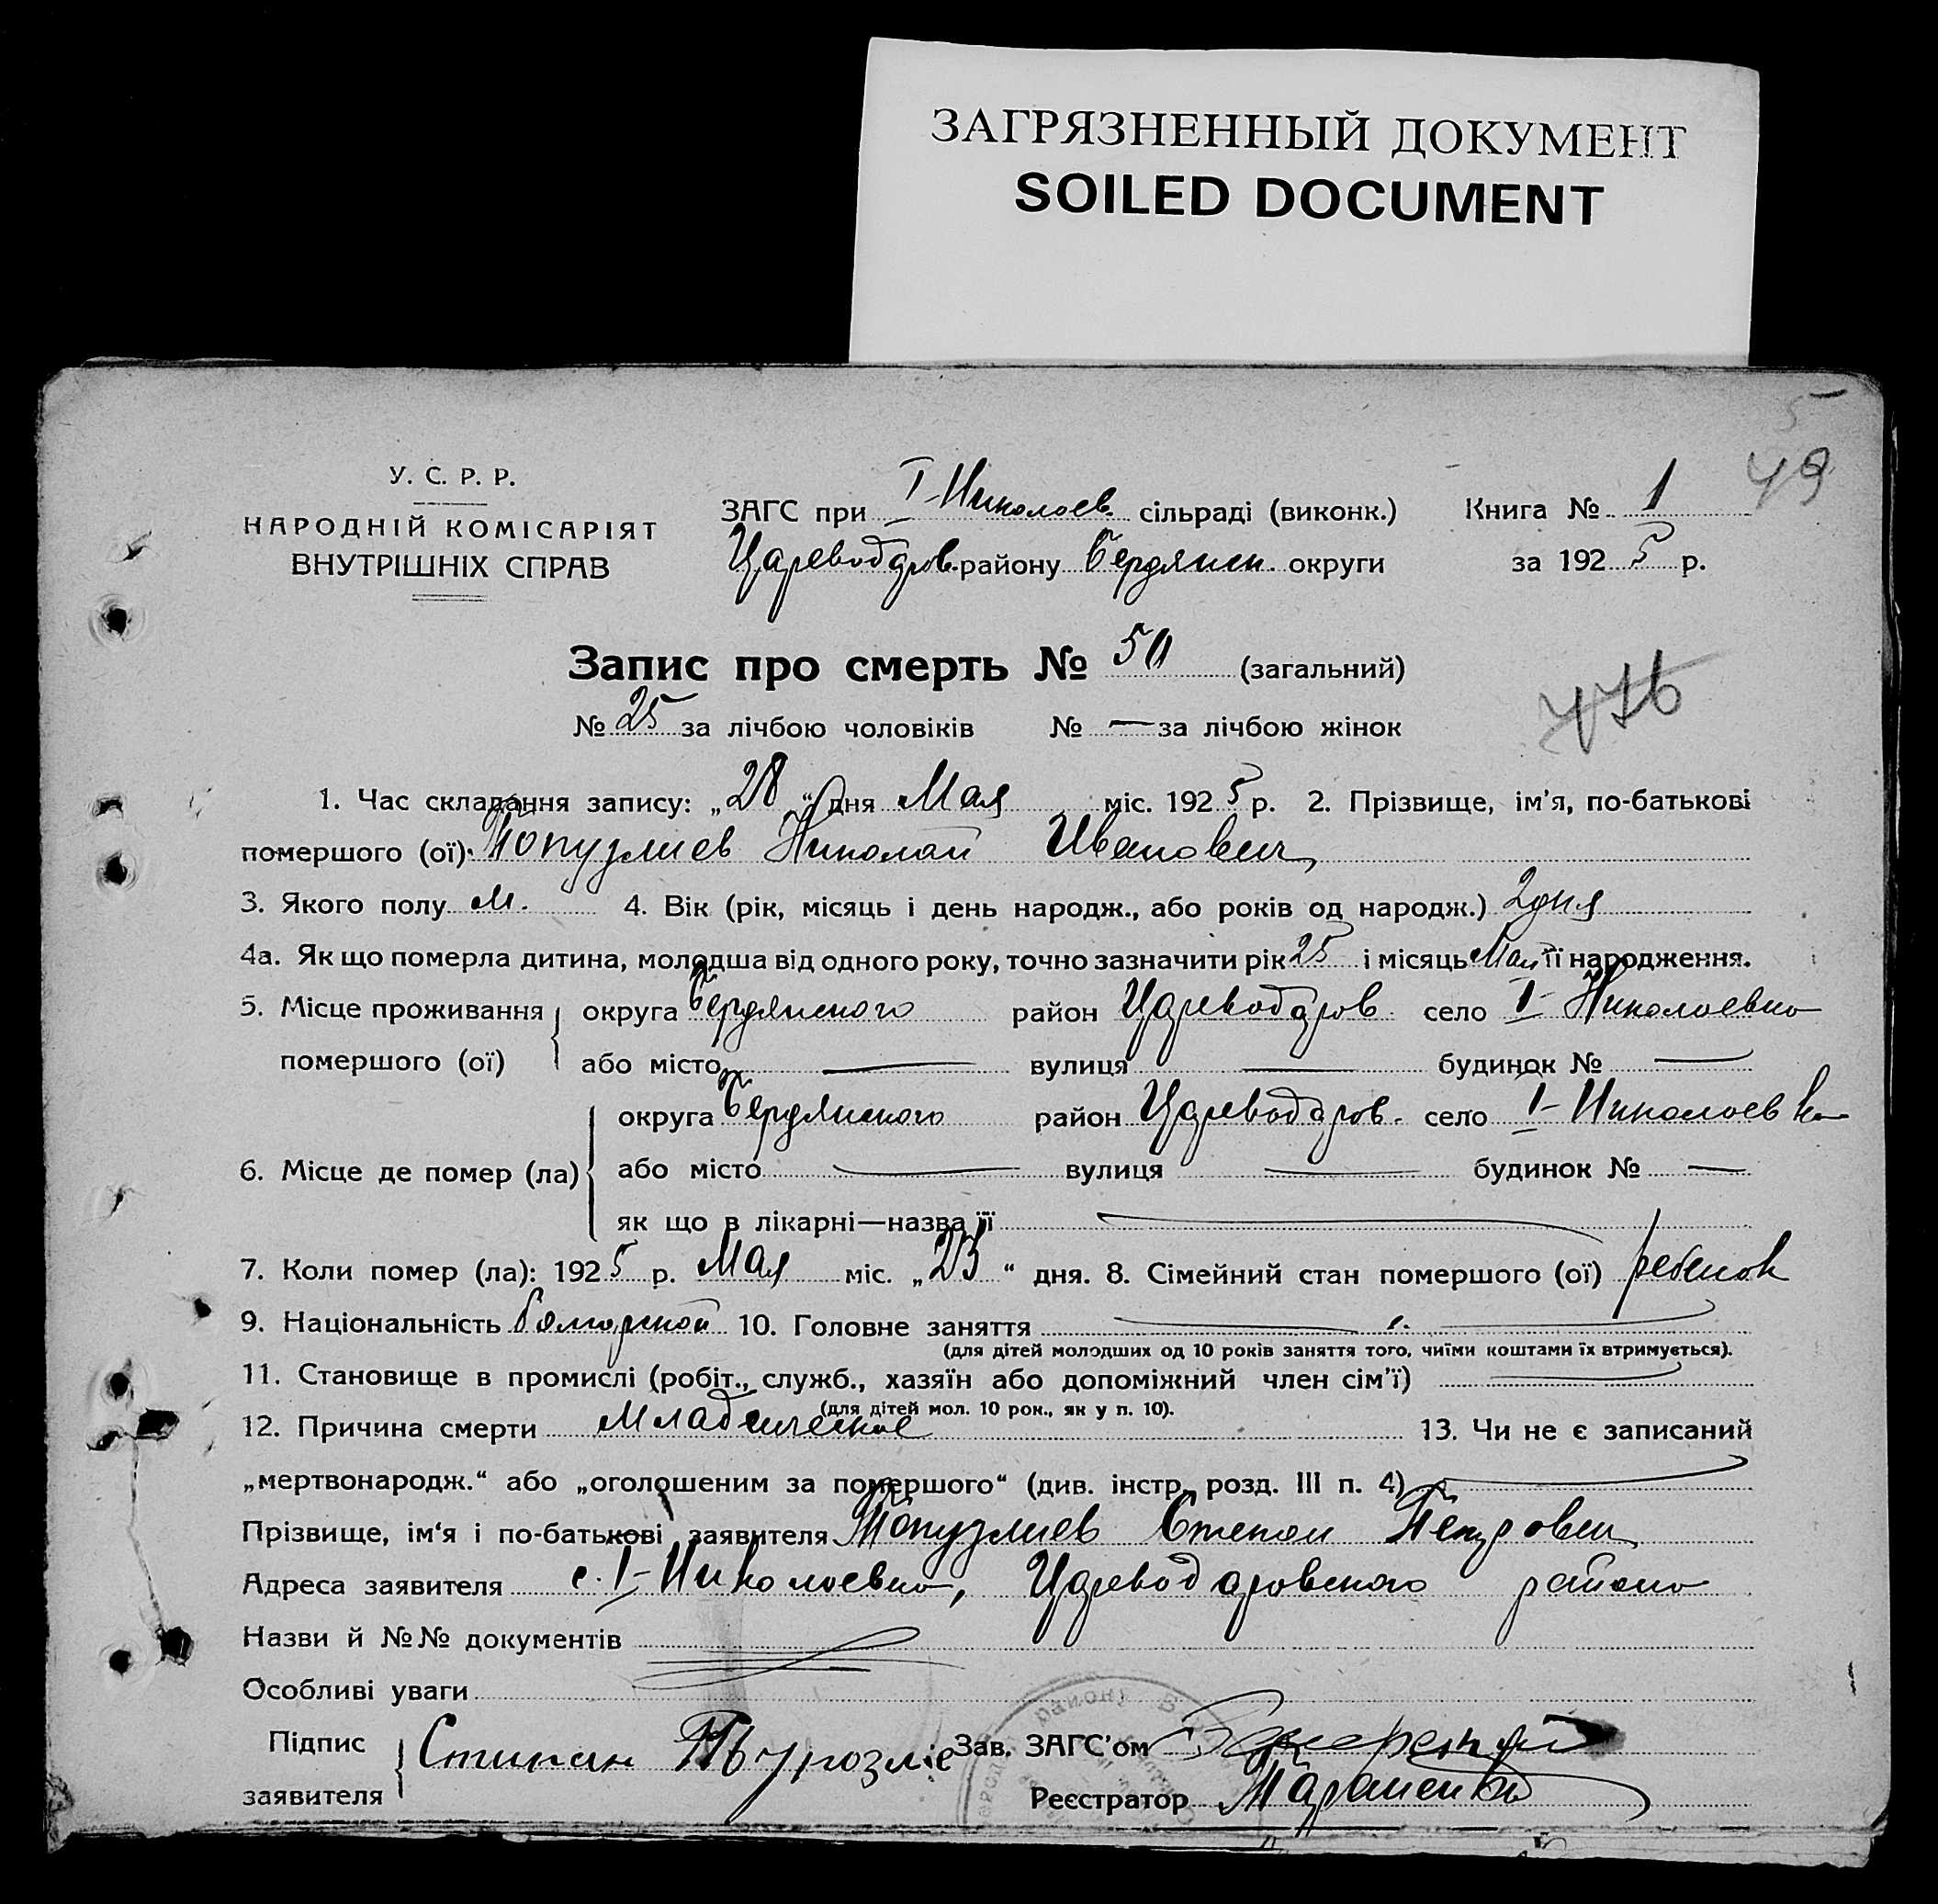 ЗАГРЯЗНЕННЫЙ ДОКУМЕНТ
SOILED DOCUMENT
5
49
У. С. Р. Р.
НАРОДНІЙ КОМІСАРІЯТ
ВНУТРІШНІХ СПРАВ
ЗАГС при I-Николаев. сільраді (виконк.) Книга № 1
Цареводаров. району Бердянск. округи за 1925 р.
Запис про смерть № 50 (загальний)
№ 25 за лічбою чоловіків № — за лічбою жінок
476
1. Час складання запису: „28“ дня Мая міс. 1925 р. 2. Прізвище, ім'я, по-батькові
помершого (ої) Топузлиев Николай Иванович
3. Якого полу м. 4. Вік (рік, місяць і день народж., або років од народж.) 2 дня
4а. Як що померла дитина, молодша від одного року, точно зазначити рік 25 і місяць Мая її народження.
5. Місце проживання помершого (ої) округа Бердянского район Цареводаров. село I-Николаевка
або місто — вулиця — будинок № —
6. Місце де помер (ла) округа Бердянского район Цареводаров. село I-Николаевка
або місто — вулиця — будинок № —
як що в лікарні—назва її —
7. Коли помер (ла): 1925 р. Мая міс. „23“ дня. 8. Сімейний стан помершого (ої) ребенок
9. Національність болгарской 10. Головне заняття —
(для дітей молодших од 10 років заняття того, чиїми коштами їх втримується).
11. Становище в промислі (робіт., служб., хазяїн або допоміжний член сім'ї) —
(для дітей мол. 10 рок., як у п. 10).
12. Причина смерти Младенческое 13. Чи не є записаний
„мертвонародж.“ або „оголошеним за помершого“ (див. інстр. розд. III п. 4) —
Прізвище, ім'я і по-батькові заявителя Топузлиев Степан Петрович
Адреса заявителя с. I-Николаевка, Цареводаровского района
Назви й №№ документів
Особливі уваги
Підпис заявителя Стипан
Зав. ЗАГС'ом
Реєстратор
району